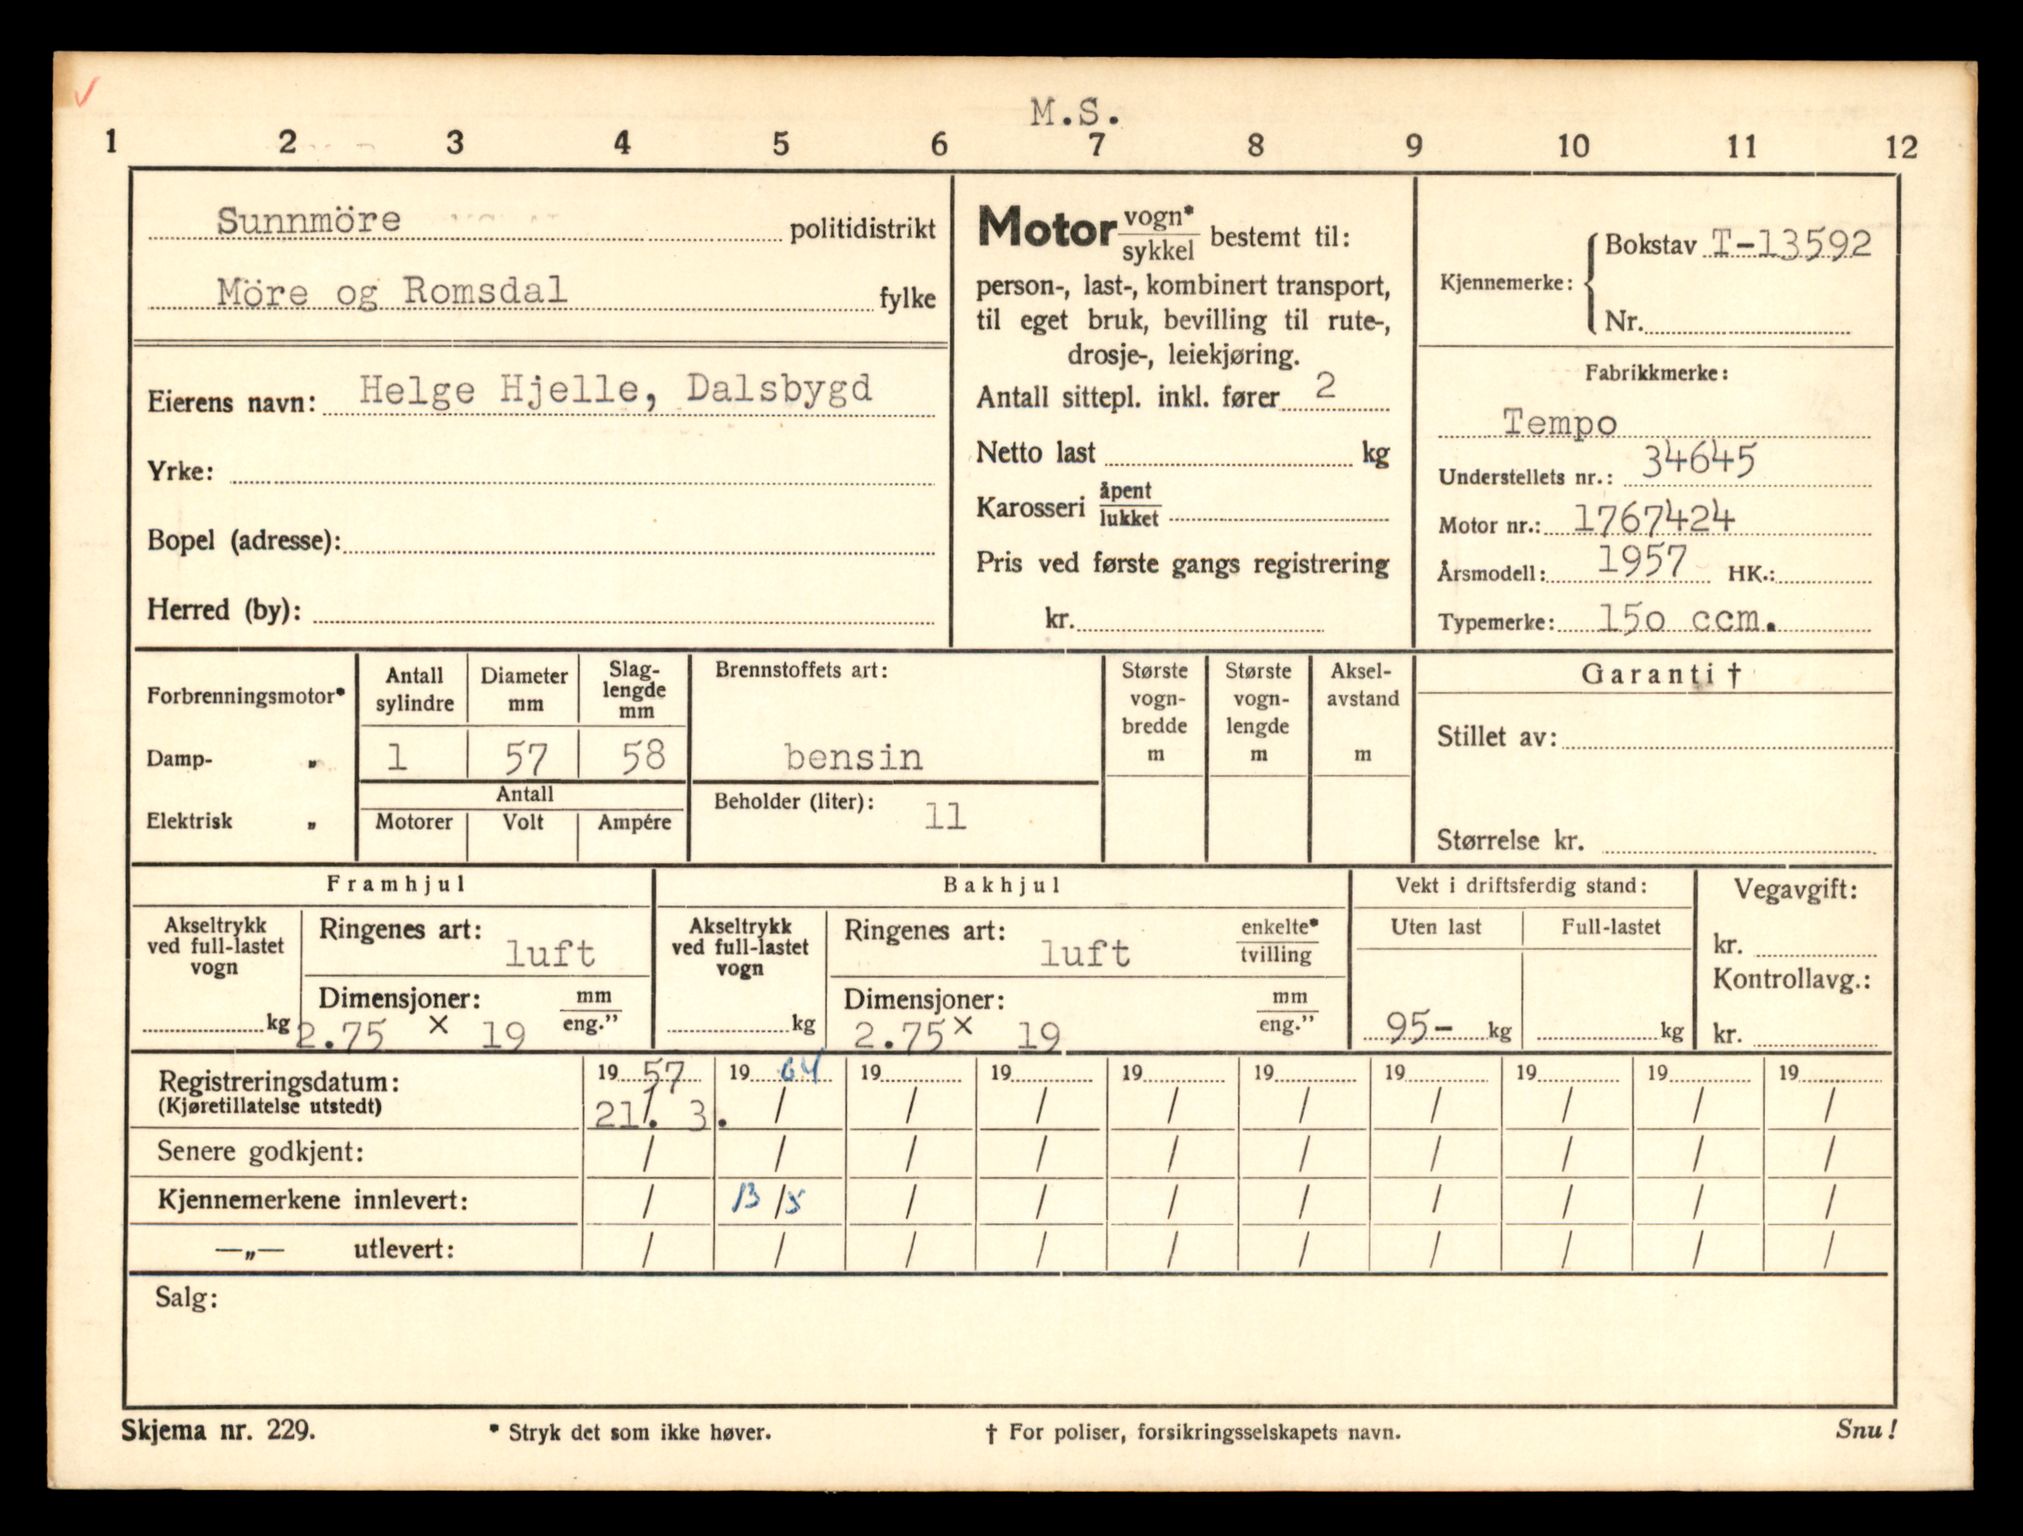 M.S.
1 2 3 4 5 6 7 8 9 10 11 12
Sunnmöre politidistrikt
Möre og Romsdal fylke
Eierens navn: Helge Hjelle, Dalsbygd
Yrke:
Bopel (adresse):
Herred (by):
Motor vogn* sykkel bestemt til:
person-, last-, kombinert transport,
til eget bruk, bevilling til rute-,
drosje-, leiekjøring.
Antall sittepl. inkl. fører 2
Netto last kg
Karosseri åpent lukket
Pris ved første gangs registrering
kr.
Kjennemerke: { Bokstav T-13592
Nr.
Fabrikkmerke:
Tempo
Understellets nr.: 34645
Motor nr.: 1767424
Årsmodell: 1957 HK.:
Typemerke: 150 ccm.
Forbrenningsmotor*
Damp- „
Elektrisk „
Antall sylindre
Diameter mm
Slag-
lengde
mm
1 57 58
Antall
Motorer Volt Ampére
Brennstoffets art:
bensin
Beholder (liter): 11
Største
vogn-
bredde
m
Største
vogn-
lengde
m
Aksel-
avstand
m
Garanti †
Stillet av:
Størrelse kr.
Framhjul
Akseltrykk
ved full-lastet
vogn
kg
Ringenes art: luft
Dimensjoner: mm eng."
2.75 × 19
Bakhjul
Akseltrykk
ved full-lastet
vogn
kg
Ringenes art: luft enkelte* tvilling
Dimensjoner: mm eng."
2.75 × 19
Vekt i driftsferdig stand:
Uten last Full-lastet
95- kg kg
Vegavgift:
kr.
Kontrollavg.:
kr.
Registreringsdatum: 19 57 19 64 19 19 19 19 19 19 19 19
(Kjøretillatelse utstedt) 21/. 3. / / / / / / / / /
Senere godkjent: / / / / / / / / / /
Kjennemerkene innlevert: / 13/5 / / / / / / / /
—„— utlevert: / / / / / / / / / /
Salg:
Skjema nr. 229. * Stryk det som ikke høver. † For poliser, forsikringsselskapets navn. Snu!